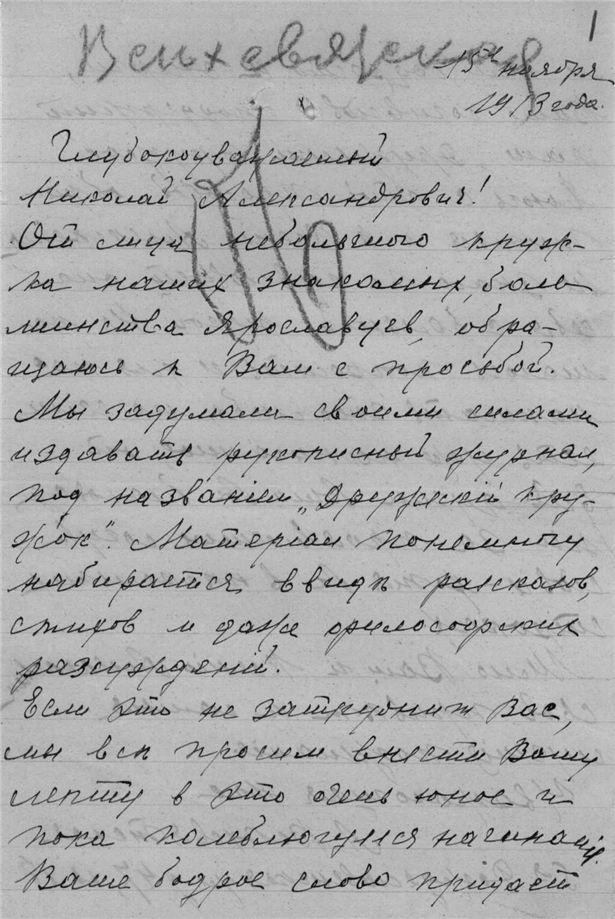 1
15го ноября
1913 года.
Глубокоуважаемый
Николай Александрович!
От лица небольшого круж-
ка наших знакомых, боль-
шинства Ярославцев, обра-
щаюсь к Вам с просьбой.
Мы задумали своими силами
издавать рукописный журнал,
под названiем „Дружескiй кру-
жок". Матерiал понемногу
набирается ввидѣ разсказов,
стихов и даже философских
разсужденiй.
Если это не затруднит Вас,
мы всѣ просим внести Вашу
лепту в это очень юное и
пока колеблющееся начинанiе.
Ваше бодрое слово придаст